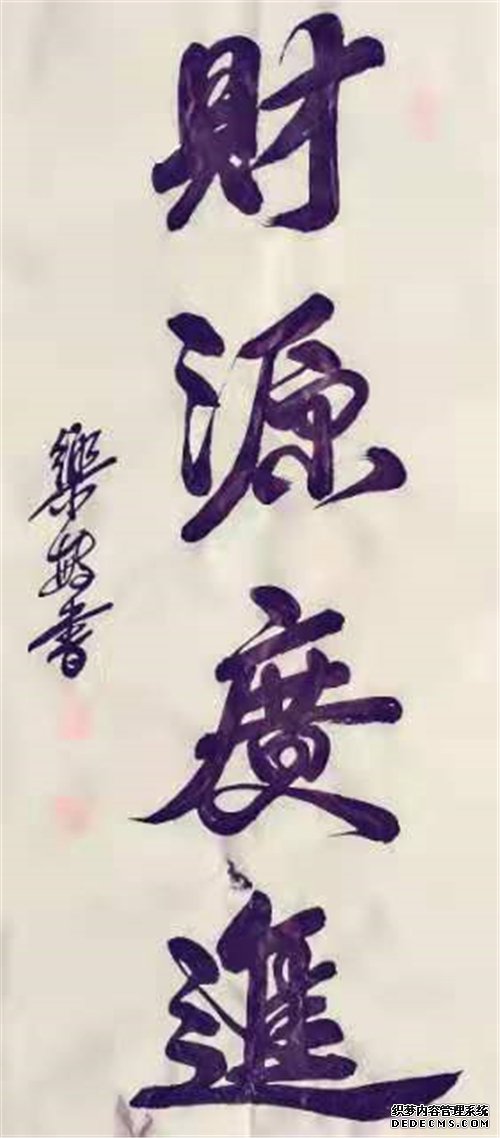 財源廣進
樂敏書
织梦内容管理系统
DEDECMS.COM